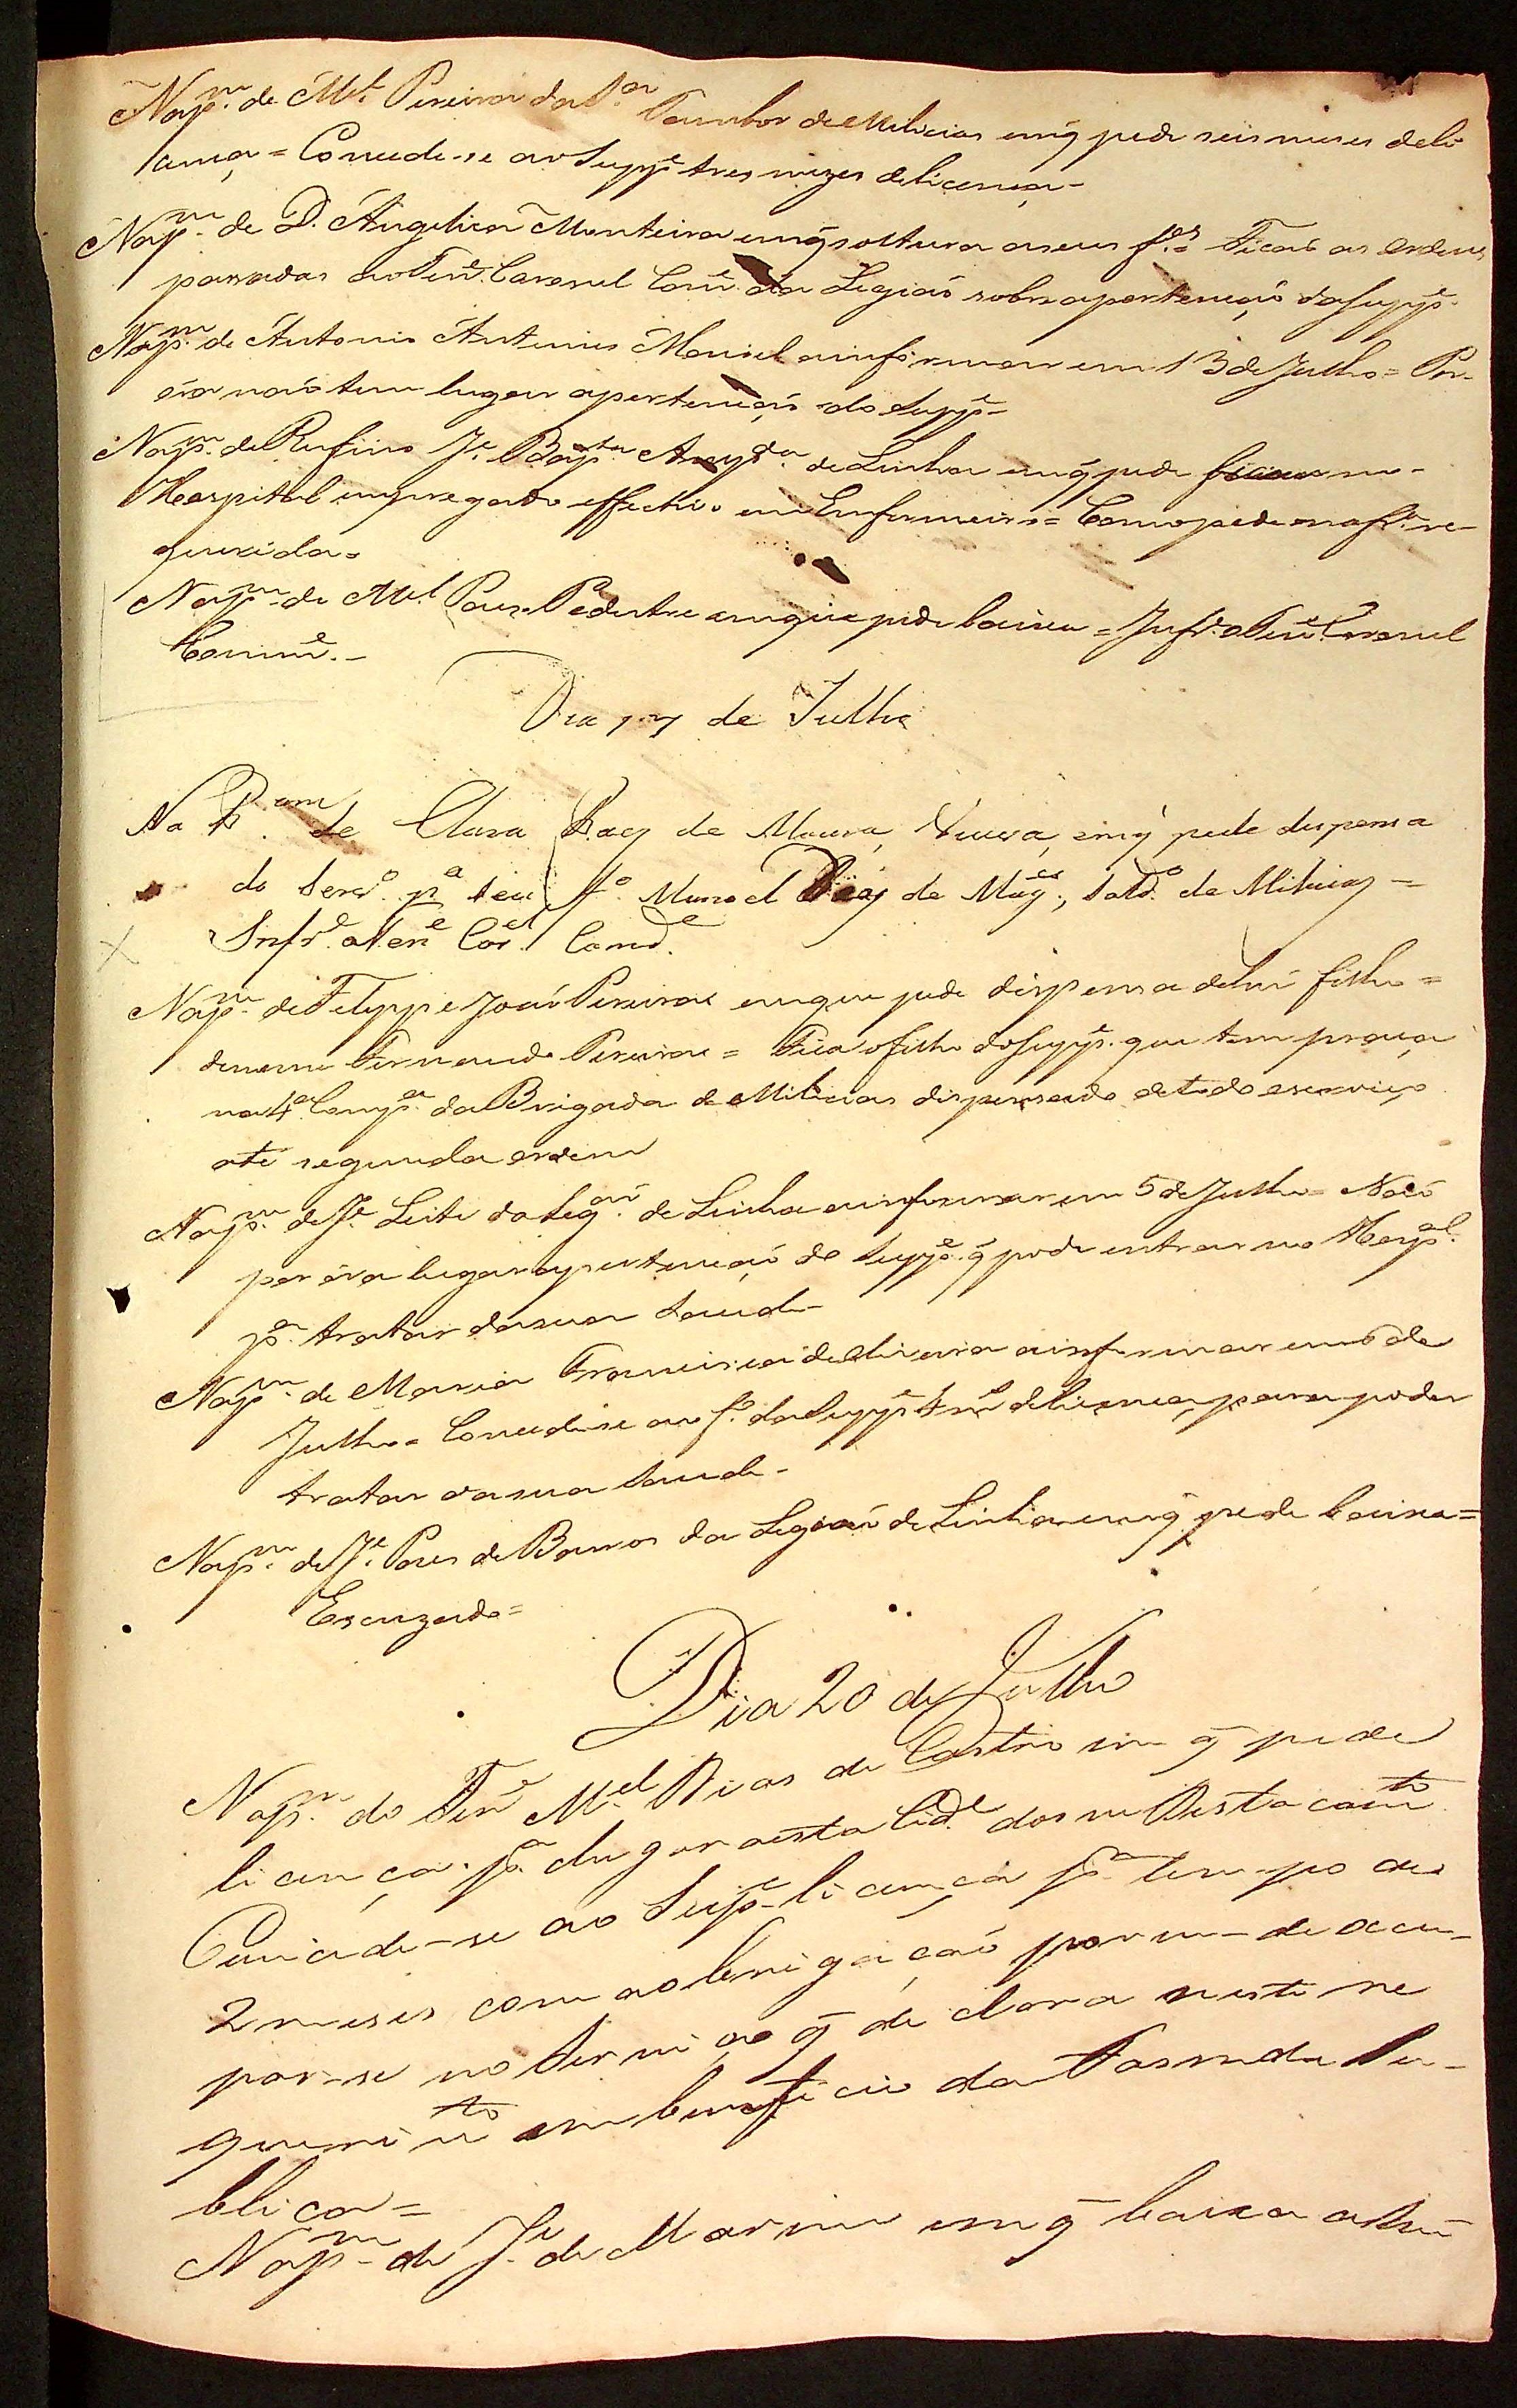 Nap.m de M.el Pereira da S.a Tambor de Milicias em q̃ pede seis meses de li
cença = Concede-se ao Supp.e tres mezes de licença -
Nap.m de D. Angelica Monteira em q̃ soltura a seus f.os = Ficaõ as ordens
passadas ao Ten.e Coronel Com.e da Legiaõ sobre a pertenção da Supp.e
Nap.m de Antonio Antunes Maciel a informar em 13 de Julho = Por
óra naõ tem lugar a pertenção do Supp.e =
Nap.m de Rufino J.e Bap.ta de Linha em q̃ pede ficar no -
Hospital empregado effectivo em Enfermeiro = Como pede na fr.a re-
querida =
Nap.m de M.el Paes Pedestre em que pede baixa = Inf.e o Ten.e Coronel
Comm.e -
Dia 17 de Julho
Na P.am de Clara Roiz de Moura, Viuva, em q̃ pede dispensa
do Serv.o p.a seu f.o Manoel Roiz de Mag.es, Sold.o de Milicias =
Infr.e o Ten.e Cor.el Comd.e
Nap.m de Felippe Joaõ Pereira em que pede dispensa de hũ filho =
de nome Fernando Pereira = Fica o filho do Supp.e que tem praça
na 4.a Comp.a da Brigada de Milicias dispensado de todo o serviço
até segunda ordem
Nap.m de J.e Leite da Leg.aõ de Linha a informar em 5 de Julho = Naõ
por óra lugar a pertenção do Supp.e q̃ pode entrar no Hosp.al
p.a tratar da sua saude -
Nap.m de Maria Francisca de Oliveira a informar em 6 de
Julho = Concede-se ao f.o da Supp.e de licença para poder
tratar da sua saude -
Nap.m de J.e Paes de Barros da Legiaõ de Linha em q̃ pede baixa =
Escuzado =
Dia 20 de Julho
Nap.m do Ten.e M.el Dias de Castro em q̃ pede
licença p.a chegar a esta Cid.e do seu Destacam.to
Concede-se ao Sup.e licença p.a tempo de
2 meses com a obrigaçaõ por m - de occu-
par-se no servi ço q̃ de clara neste re
querim.to em beneficio da Fasenda Pu-
blica =
Nap.m de J.e de Marim em q̃ baixa a hum